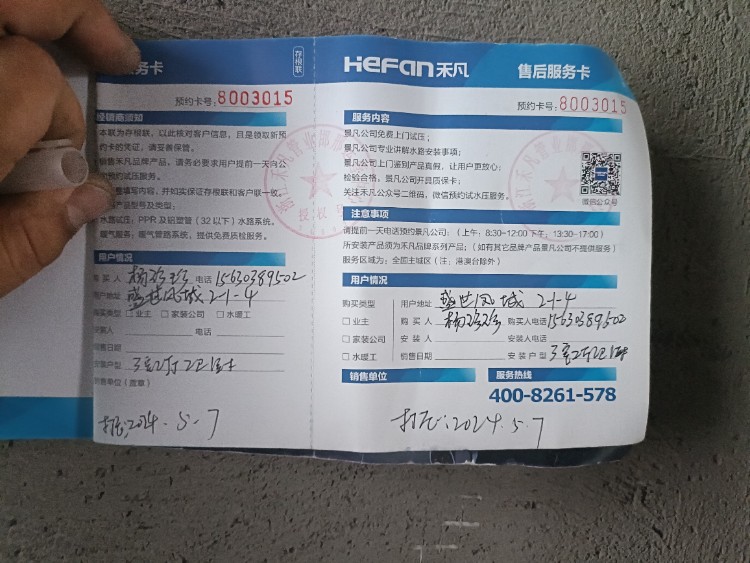 务卡
存根联
预约卡号：8003015
经销商须知
本联为存根联，以此核对客户信息，且是领取新预
约卡的凭证，请妥善保管。
销售禾凡品牌产品，请务必要求用户提前一天向公
司预约试压服务。
填写内容，并如实保证存根联和客户联一致。
产品型号及类型：
水路试压：PPR 及铝塑管（32以下）水路系统。
暖气服务：暖气管路系统，提供免费质检服务。
用户情况
购买人 电话 15630389502
用户地址 盛世凤城 2-1-4
购买类型 □ 业主 □ 家装公司 □ 水暖工
安装人 电话
销售日期
安装户型 3室2厅2卫1厨
销售单位（盖章）
打压：2024.5.7
HeFan禾凡
售后服务卡
预约卡号：8003015
服务内容
景凡公司免费上门试压；
景凡公司专业讲解水路安装事项；
景凡公司上门鉴别产品真假，让用户更放心；
检验合格，景凡公司开具质保卡；
关注禾凡公众号二维码，微信预约试水压服务。
微信公众号
注意事项
请提前一天电话预约景凡公司：（上午：8:30-12:00下午：13:30-17:00）
所安装产品须为禾凡品牌系列产品；（如有其它品牌产品景凡公司不提供服务）
服务区域为：全国主城区（注：港澳台除外）
用户情况
购买类型 用户地址 盛世凤城 2-1-4
□ 业主 购买人 购买人电话 15630389502
□ 家装公司 安装人 安装人电话
□ 水暖工 销售日期 安装户型 3室2厅2卫1厨
销售单位
服务热线
400-8261-578
打压：2024.5.7